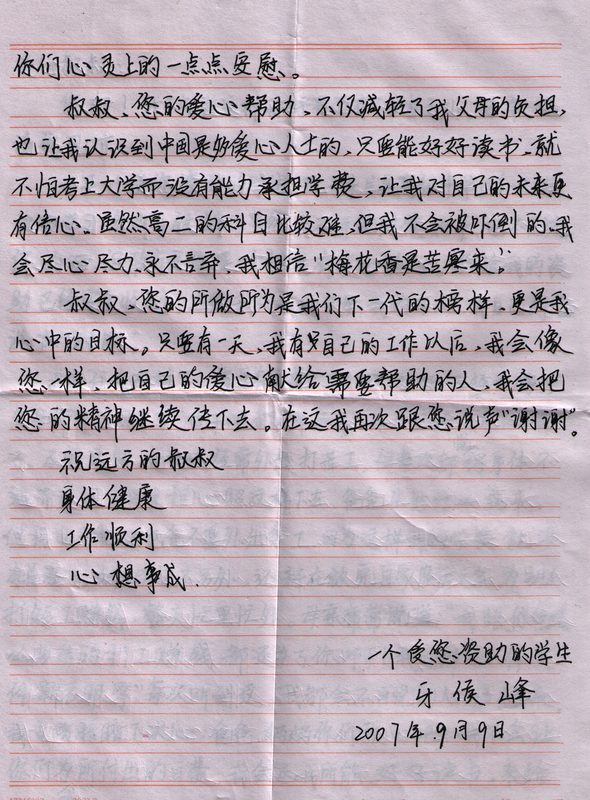 你们心灵上的一点点安慰。
叔叔、您的爱心帮助、不仅减轻了我父母的负担,
也让我认识到中国是多爱心人士的、只要能好好读书、就
不怕考上大学而没有能力承担学费、让我对自己的未来更
有信心。虽然高二的科目比较难、但我不会被吓倒的、我
会尽心尽力、永不言弃、我相信“梅花香是苦寒来”。
叔叔、您的所做所为是我们下一代的榜样、更是我
心中的目标。只要有一天、我有自己的工作以后、我会像
您一样、把自己的爱心献给需要帮助的人、我会把
您的精神继续传下去。在这我再次跟您说声“谢谢”。
祝远方的叔叔
身体健康
工作顺利
心想事成.
一个受您资助的学生
牙侯峰
2007年9月9日